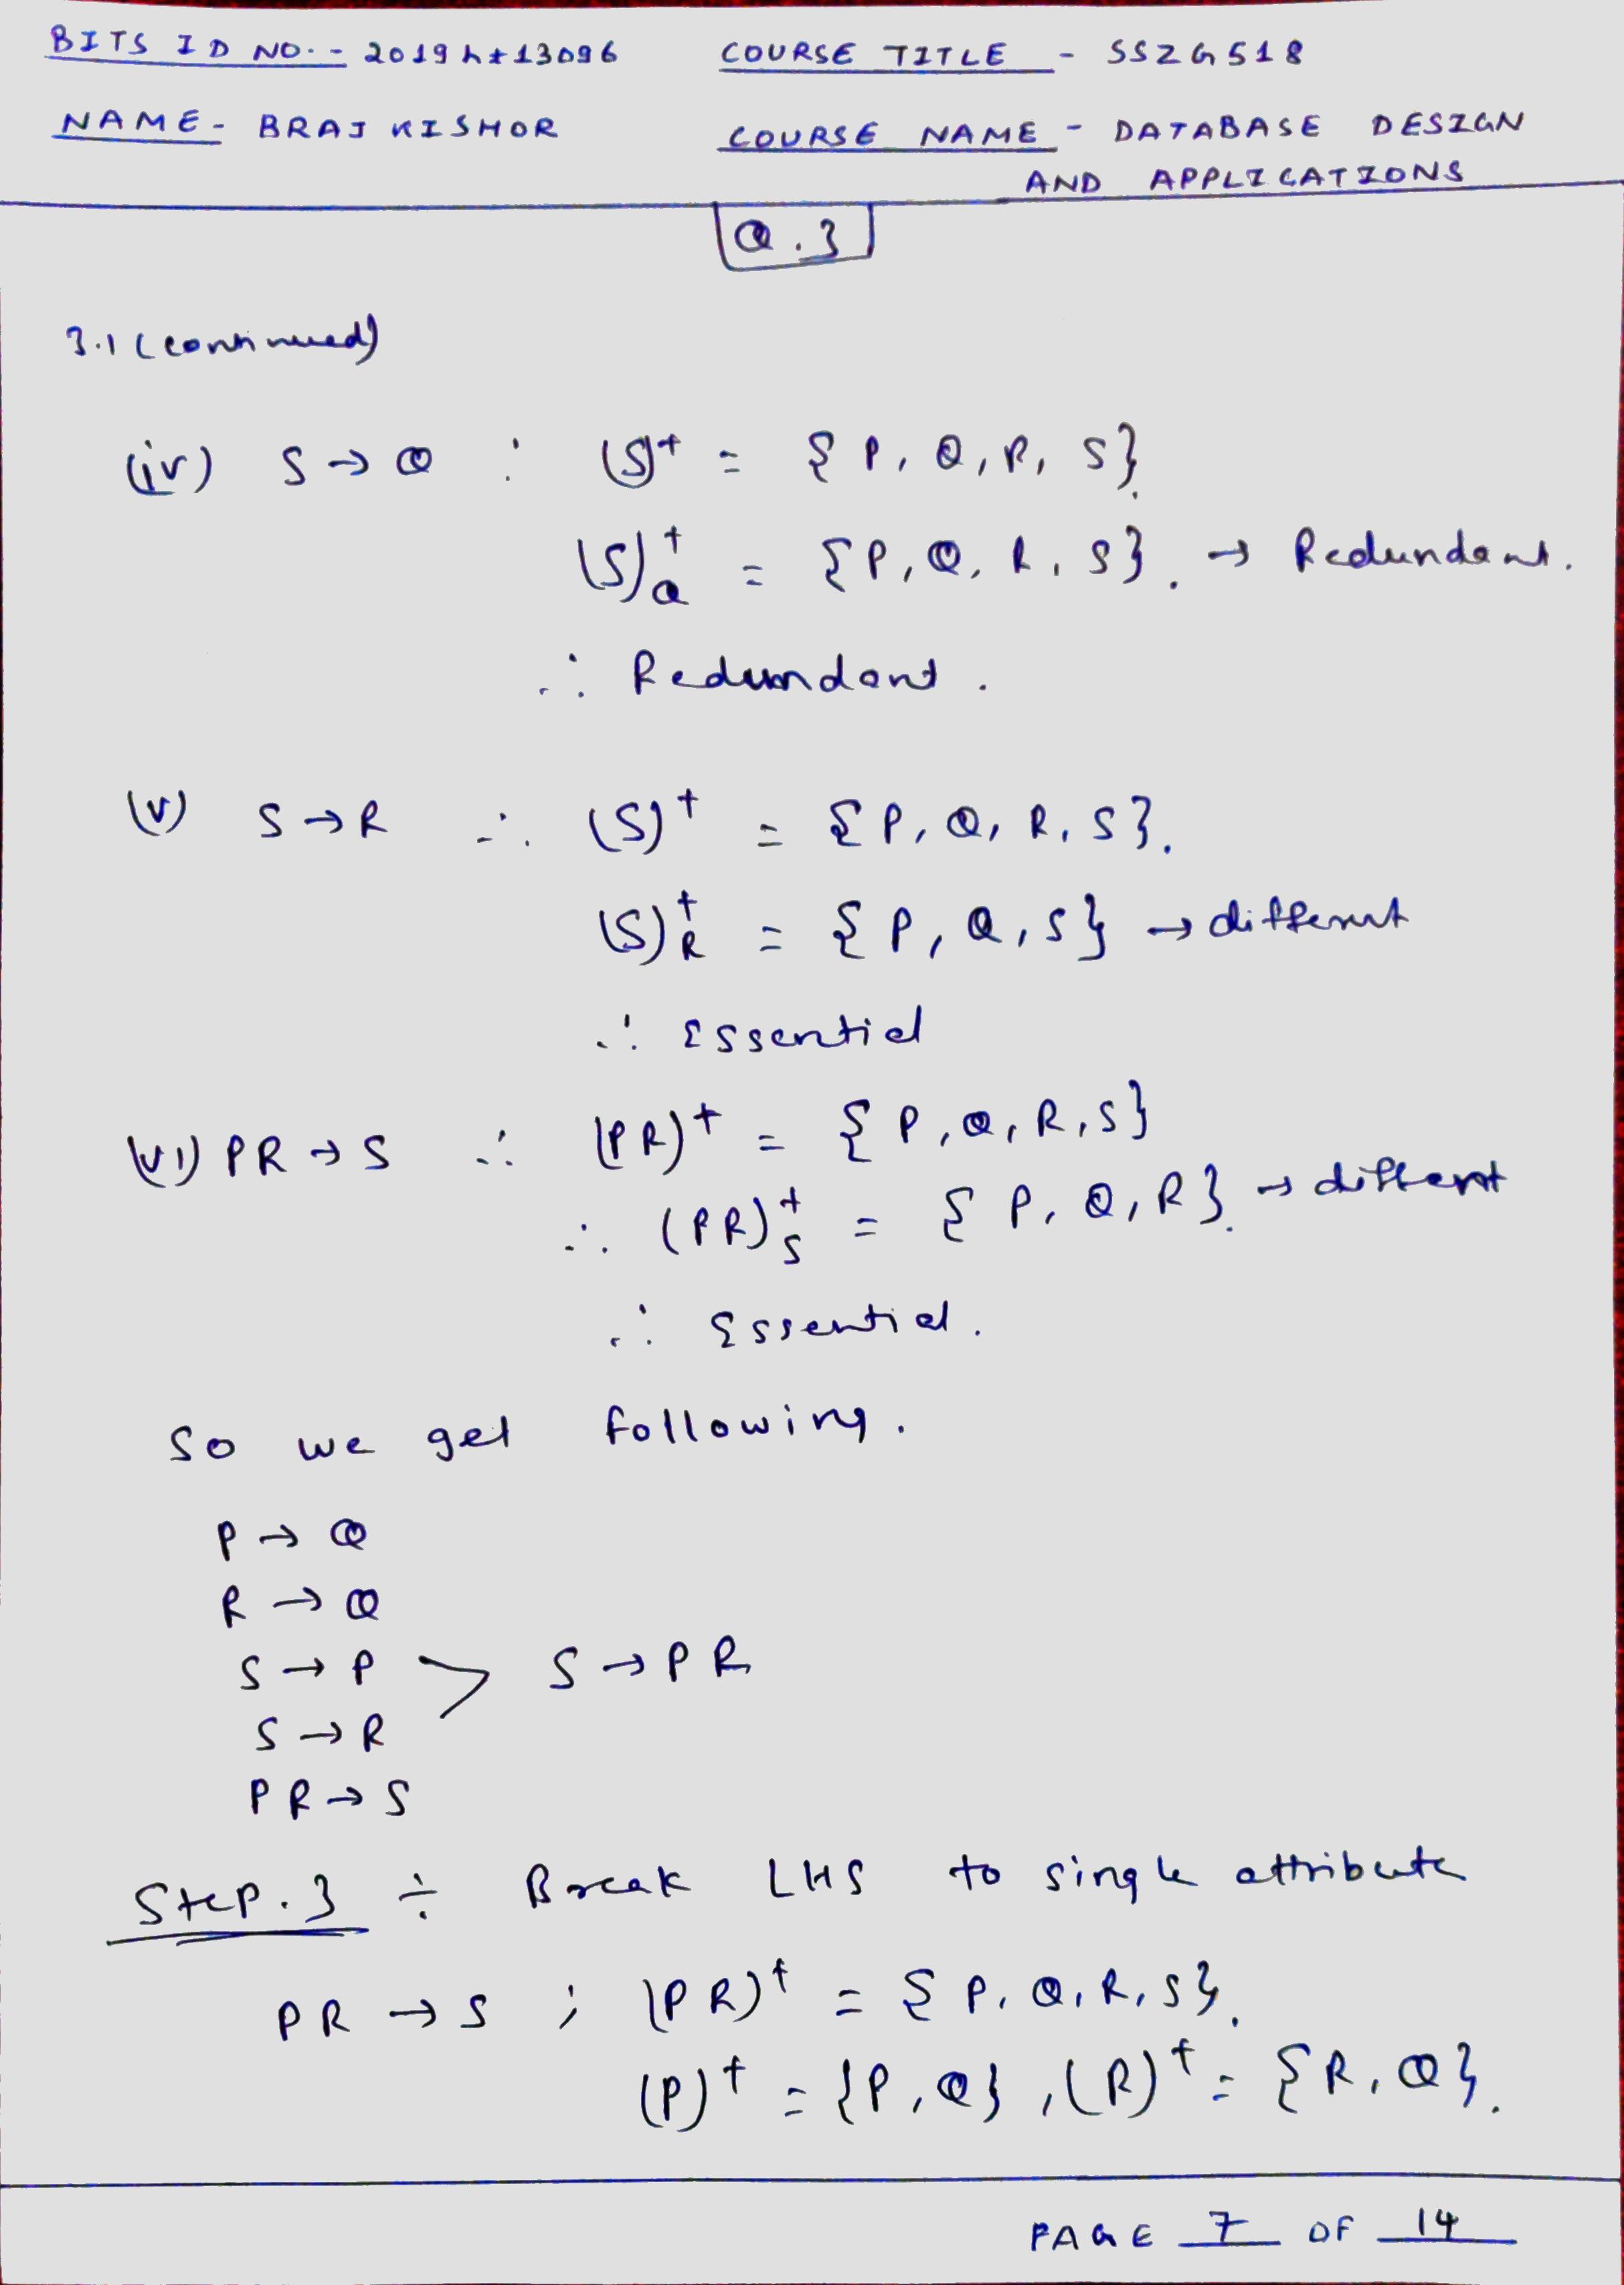 BITS ID NO. - 2019ht13096 COURSE TITLE - SSZG518
NAME - BRAJ KISHOR COURSE NAME - DATABASE DESIGN
AND APPLICATIONS
Q.3
3.1 (continued)
(iv) S → Q : (S)⁺ = {P, Q, R, S}.
(S)⁺Q = {P, Q, R, S}. → Redundant.
∴ Redundant.
(v) S → R ∴ (S)⁺ = {P, Q, R, S}.
(S)⁺R = {P, Q, S} → different
∴ Essential
(vi) PR → S ∴ (PR)⁺ = {P, Q, R, S}
∴ (PR)⁺S = {P, Q, R}. → different
∴ Essential.
So we get following.
P → Q
R → Q
S → P > S → PR
S → R
PR → S
Step.3 ÷ Break LHS to single attribute
PR → S ; (PR)⁺ = {P, Q, R, S}.
(P)⁺ = {P, Q}, (R)⁺ = {R, Q}.
PAGE 7 OF 14